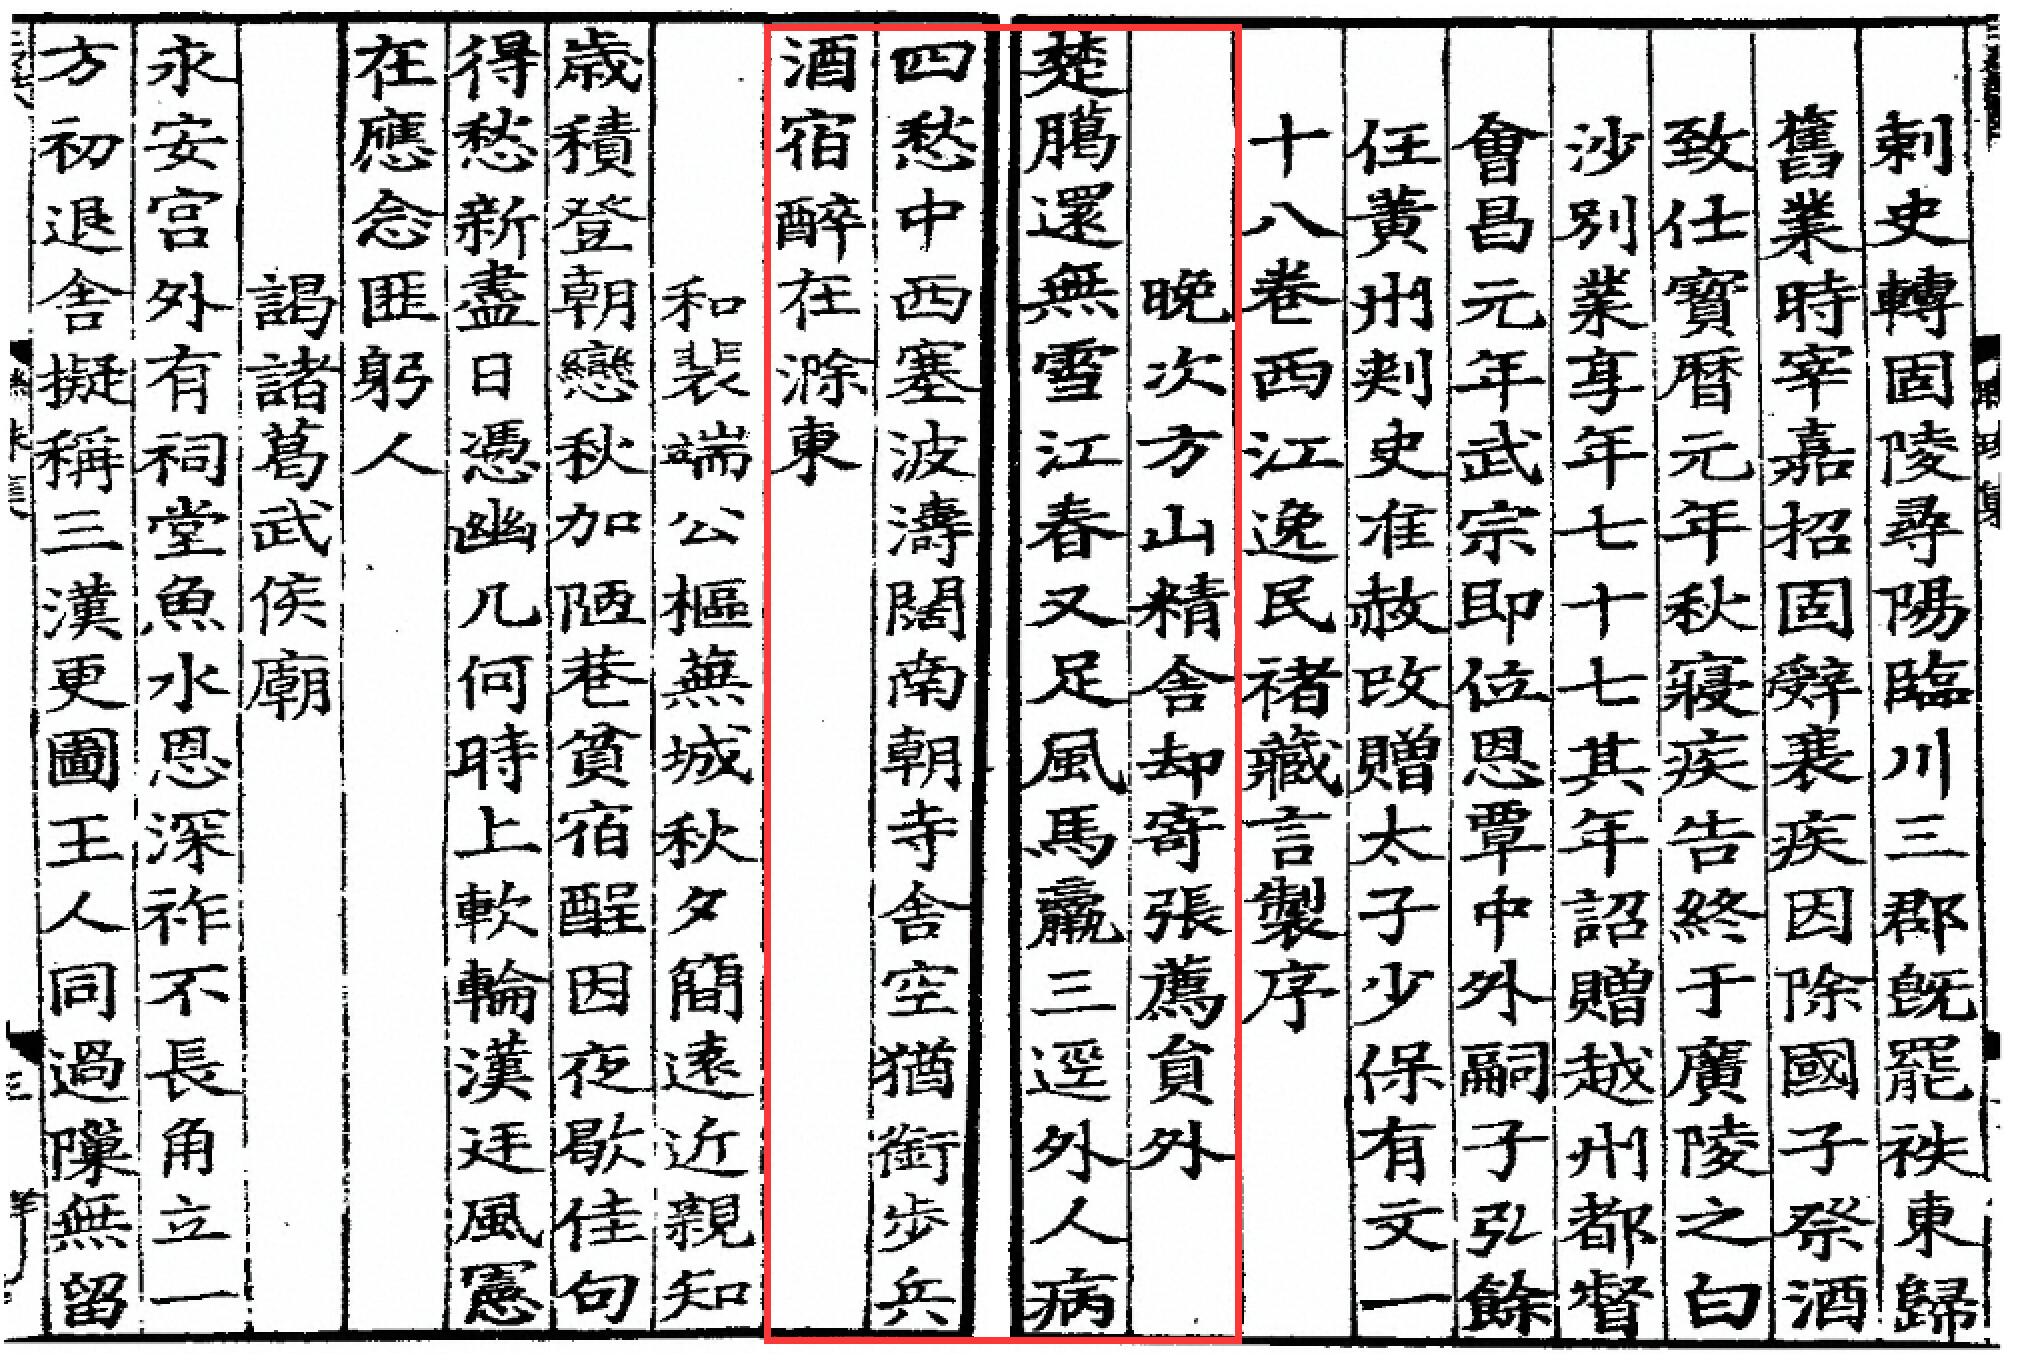 刺史轉固陵尋陽臨川三郡旣罷袟東歸
舊業時宰嘉招固辝衰疾因除國子祭酒
致仕寳曆元年秋寢疾告終于廣陵之白
沙別業享年七十七其年詔贈越州都督
會昌元年武宗即位恩覃中外嗣子弘餘
任黄州刾史准赦改贈太子少保有文一
十八卷西江逸民褚藏言製序
晚次方山精舍却寄張薦貟外
楚臈還無雪江春又足風馬羸三逕外人病
四愁中西塞波濤闊南朝寺舍空猶銜步兵
酒宿醉在滁東
和裴端公樞蕪城秋夕簡遠近親知
歳積登朝戀秋加陋巷貧宿酲因夜歇佳句
得愁新盡日憑幽几何時上軟輪漢廷風憲
在應念匪躬人
謁諸葛武侯廟
永安宮外有祠堂魚水恩深祚不長角立一
方初退舍擬稱三漢更圖王人同過隟無留